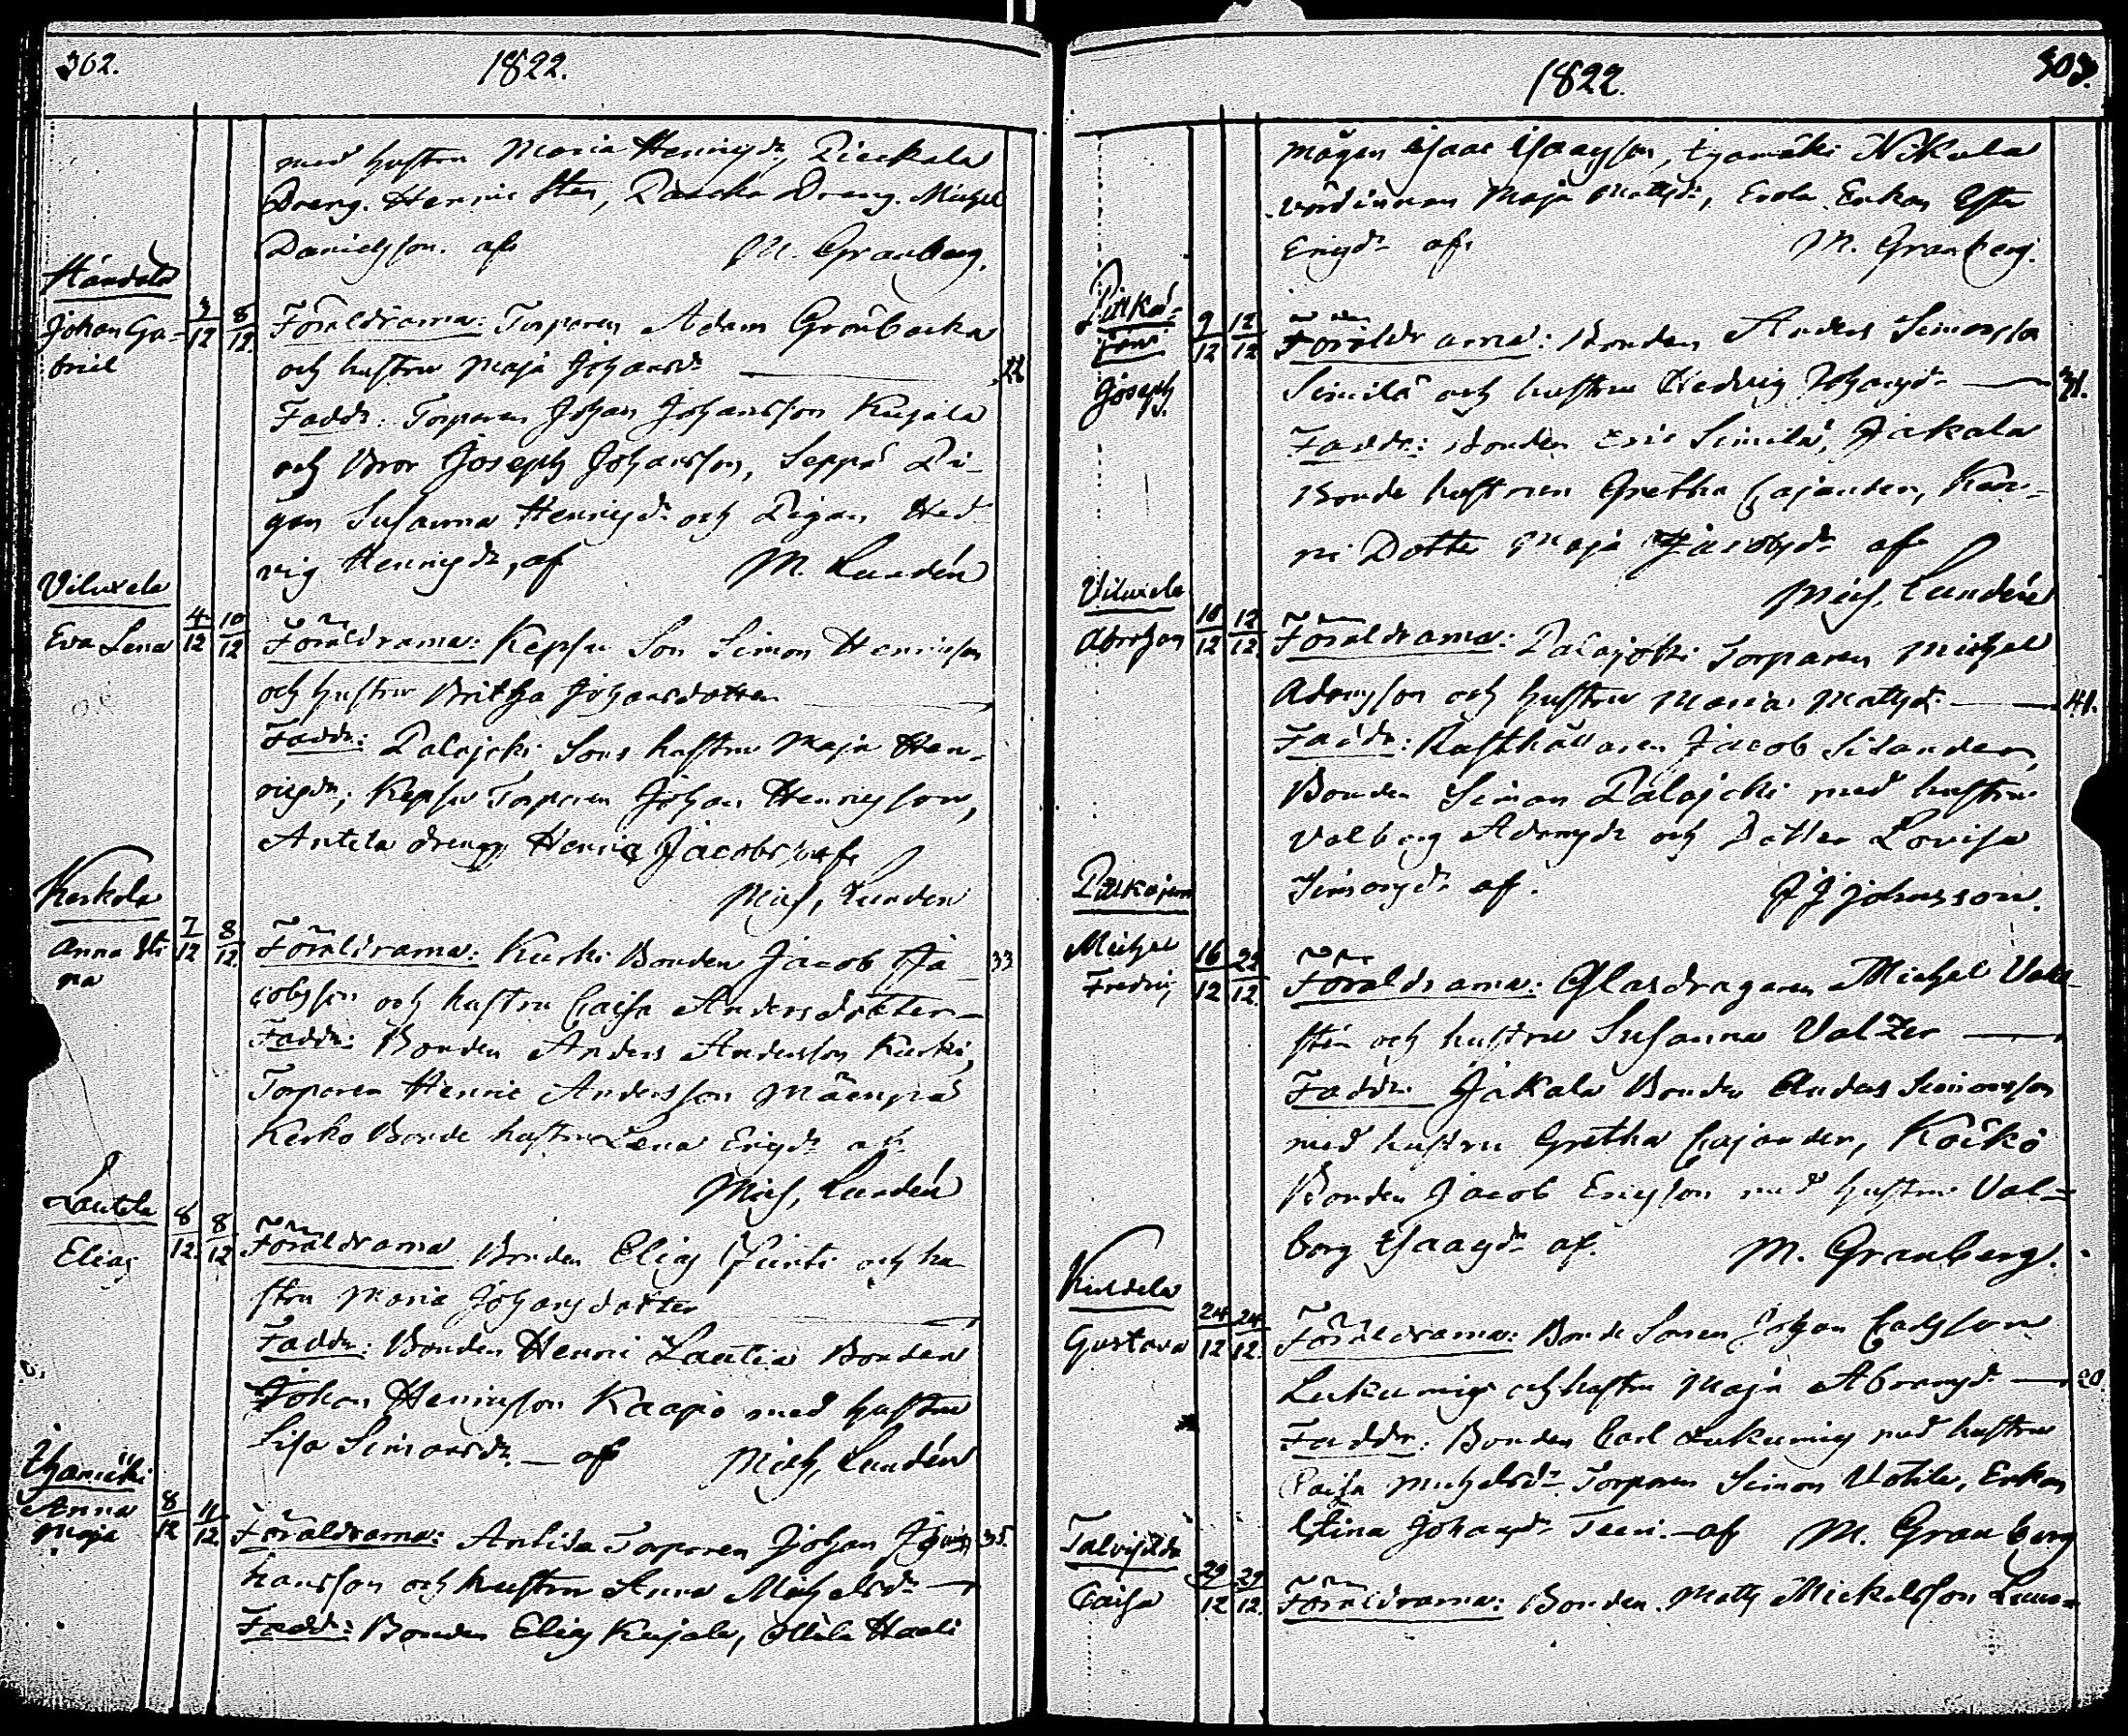 362.
1822.
med hustru Maria Henricsdr, Pieckala
Dreng. Henric Sten, Dreng. Michel
Danielsson. af M. Granberg.
Johan Ga-
briel
3/12 8/12
Föräldrarna: Torparen Adam Grönbacka
och hustru Maja Johansdr
Faddr: Torparen Johan Johansson Kujala
och Bror Joseph Johansson, Seppä Pi-
gan Susanna Henricsdr och Pigan Hed-
vig Henricsdr, af M. Lundén
Viluxela
Eva Lena
4/12 10/12
Föräldrarna: Kepsu Son Simon Henricsson
och hustru Britha Johansdotter
Faddr: Palojoki Sons hustru Maja Hen-
ricsdr, Kepsu Torparen Johan Henricsson,
Antela dreng Henric Jacobsson af
Mich, Lundén
Kerkola
Anna Sti-
na
7/12 8/12
Föräldrarna: Kurki Bonden Jacob Ja- 33
cobsson och hustru Caisa Andersdotter
Faddr: Bonden Anders Andersson Kurki,
Torparen Henric Andersson Mäenpää
Kerko Bonde hustru Lena Ericsdr af
Mich, Lundén
Lautela
Elias
8/12 8/12
Föräldrarna Bonden Elias Junti och hu-
stru Maria Johansdotter
Faddr: Bonden Henric Lautia Bonden
Johan Henricsson Kaapo med hustru
Lisa Simonsdr. af Mich, Lundén
Anna
Maja
8/12 11/12
Föräldrarna: Torparen Johan Jo- 35.
hansson och hustru Anna Michelsdr
Faddr: Bonden Elias Kujala,
1822.
303.
mågen Isaac Isaacsson, Nikula
värdinnan Maja Mattsdr, Enkan
Ericsdr af M. Granberg.
Joseph
9/12 12/12
Föräldrarna: Bonden Anders Simonsson
Simila och hustru Hedvig Johansdr
Faddr: Bonden Eric Simila, Jakala
Bonde hustrun Gretha Cajander,
Dotter Maja Jacobsdr af
Mich, Lundén
Viluxela
Abraham
10/12 12/12
Föräldrarna: Palojoki Torparen Michel
Adamsson och hustru Maria Mattsdr 41.
Faddr: Rusthållaren Jacob Silander,
Bonden Simon Palojoki med hustru
Valborg Adamsdr och Dotter Lovisa
Simonsdr af. J J Johnsson.
Michel
Fredric
16/12 22/12
Föräldrarna: Glasdragaren Michel Vall-
stén och hustru Susanna Valzer
Faddr: Jakala Bonden Anders Simonsson
med hustru Gretha Cajander, Köckö
Bonden Jacob Ericsson med hustru Val-
borg Isaacsdr af. M. Granberg.
Gustava
24/12 24/12
Föräldrarna: Bonde Sonen Johan Carlsson
Lukumies och hustru Maja Abramsdr
Faddr: Bonden Carl Lukumies med hustru
Caisa Michelsdr Torparen Simon Uotila, Enkan
Stina Johansdr af M. Granberg
Caisa
29/12 29/12
Föräldrarna: Bonden. Matts Mickelsson